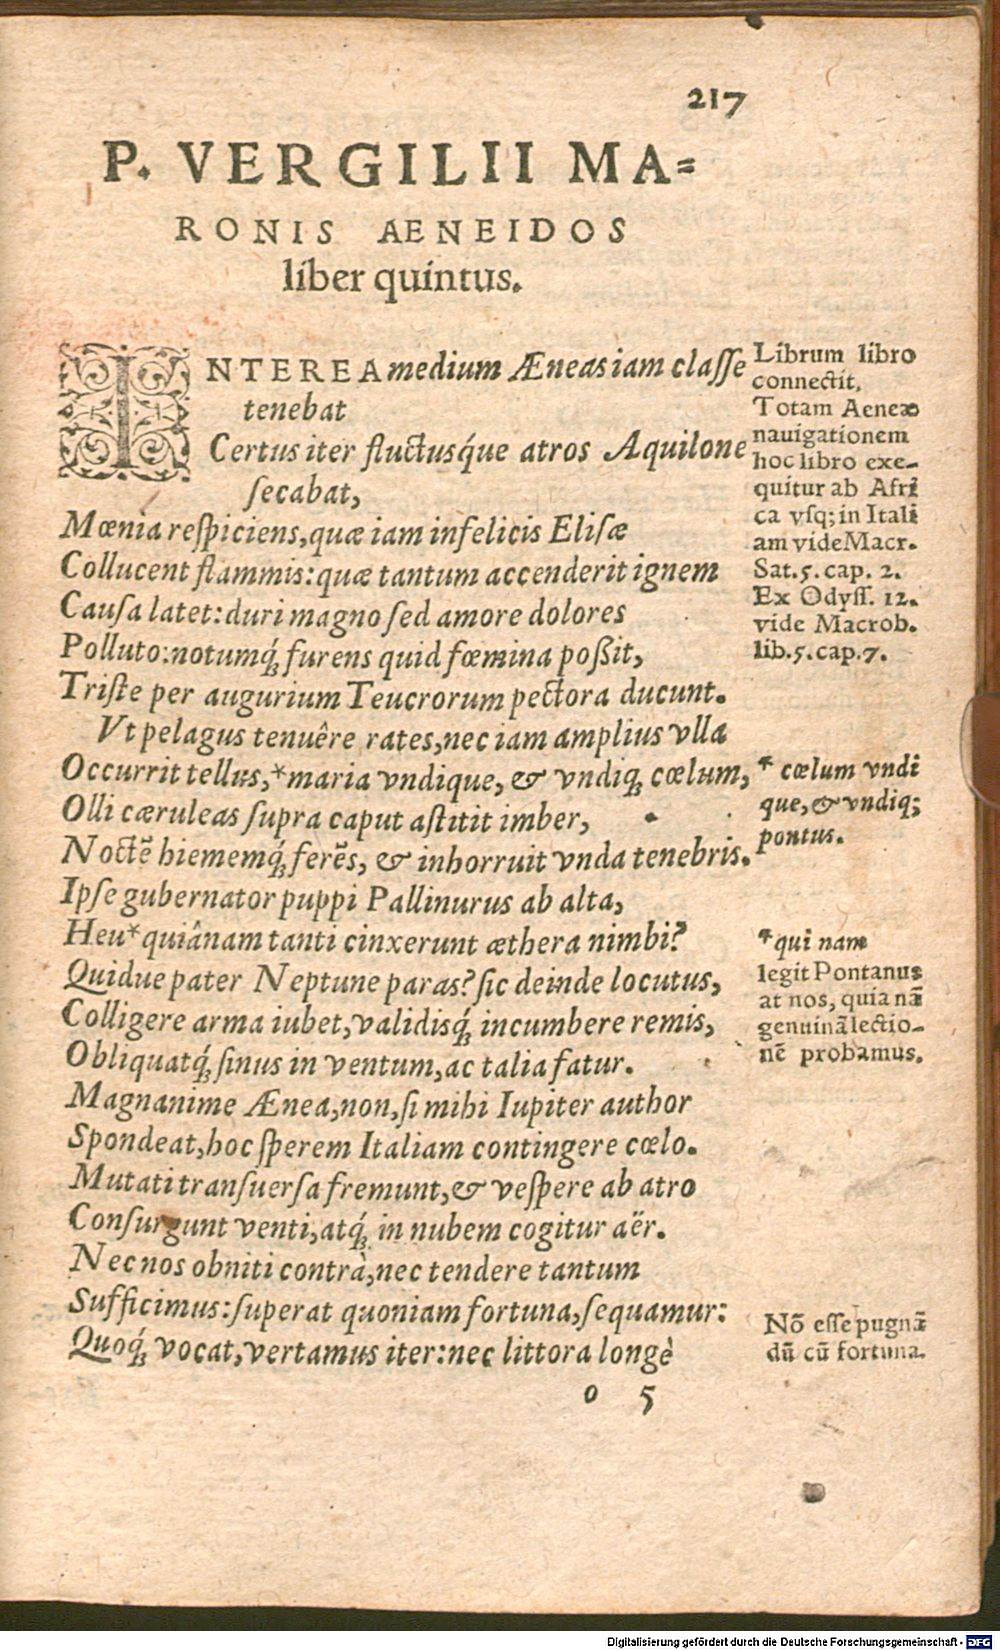 217
P. VERGILII MA=
RONIS AENEIDOS
liber quintus.
INTEREA medium Æneas iam claſſe
tenebat
Certus iter fluctusq́ue atros Aquilone
ſecabat,
Mœnia reſpiciens, quæ iam infelicis Eliſæ
Collucent flammis: quæ tantum accenderit ignem
Cauſa latet: duri magno ſed amore dolores
Polluto: notumq́; furens quid fœmina poßit,
Triſte per augurium Teucrorum pectora ducunt.
Vt pelagus tenuêre rates, nec iam amplius vlla
Occurrit tellus, *maria vndique, & vndiq; cœlum,
Olli cæruleas ſupra caput aſtitit imber,
Noctē hiememq́; ferēs, & inhorruit vnda tenebris.
Ipſe gubernator puppi Pallinurus ab alta,
Heu *quiânam tanti cinxerunt æthera nimbi?
Quidue pater Neptune paras? ſic deinde locutus,
Colligere arma iubet, validisq́; incumbere remis,
Obliquatq́; ſinus in ventum, ac talia fatur.
Magnanime Ænea, non, ſi mihi Iupiter author
Spondeat, hoc ſperem Italiam contingere cœlo.
Mutati transuerſa fremunt, & veſpere ab atro
Conſurgunt venti, atq́; in nubem cogitur aër.
Nec nos obniti contrà, nec tendere tantum
Sufficimus: ſuperat quoniam fortuna, ſequamur:
Quoq́; vocat, vertamus iter: nec littora longè
o 5
Librum libro
connectit,
Totam Aeneæ
nauigationem
hoc libro exe-
quitur ab Afri
ca vſq; in Itali
am vide Macr.
Sat. 5. cap. 2.
Ex Odyſſ. 12.
vide Macrob.
lib. 5. cap. 7.
* cœlum vndi
que, & vndiq;
pontus.
* qui nam
legit Pontanus
at nos, quia nā
genuinā lectio-
nē probamus.
Nō eſſe pugnā
dū cū fortuna.
Digitalisierung gefördert durch die Deutsche Forschungsgemeinschaft - DFG